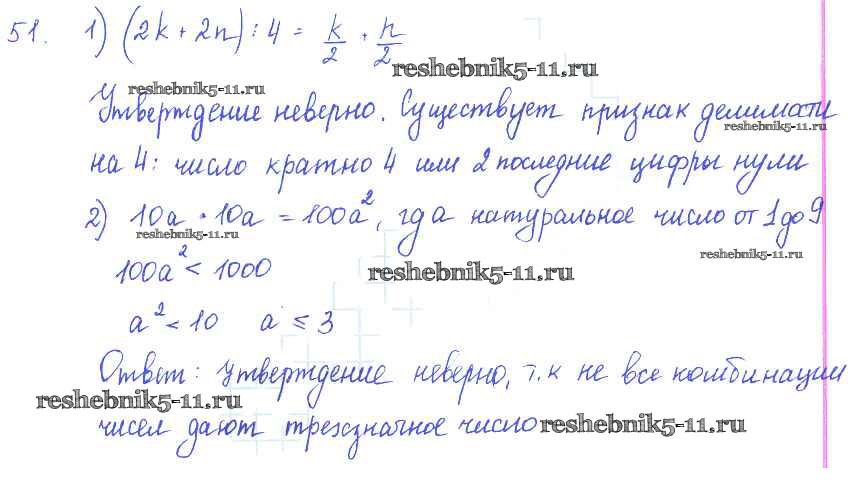 51. 1) (2k + 2n) : 4 = k/2 + n/2
reshebnik5-11.ru
reshebnik5-11.ru
Утверждение неверно. Существует признак делимости
reshebnik5-11.ru
на 4: число кратно 4 или 2 последние цифры нули
2) 10a · 10a = 100a², где a натуральное число от 1 до 9
reshebnik5-11.ru
reshebnik5-11.ru
100a² < 1000
reshebnik5-11.ru
a² < 10 a ≤ 3
Ответ: утверждение неверно, т.к не все комбинации
reshebnik5-11.ru
чисел дают трехзначное число
reshebnik5-11.ru